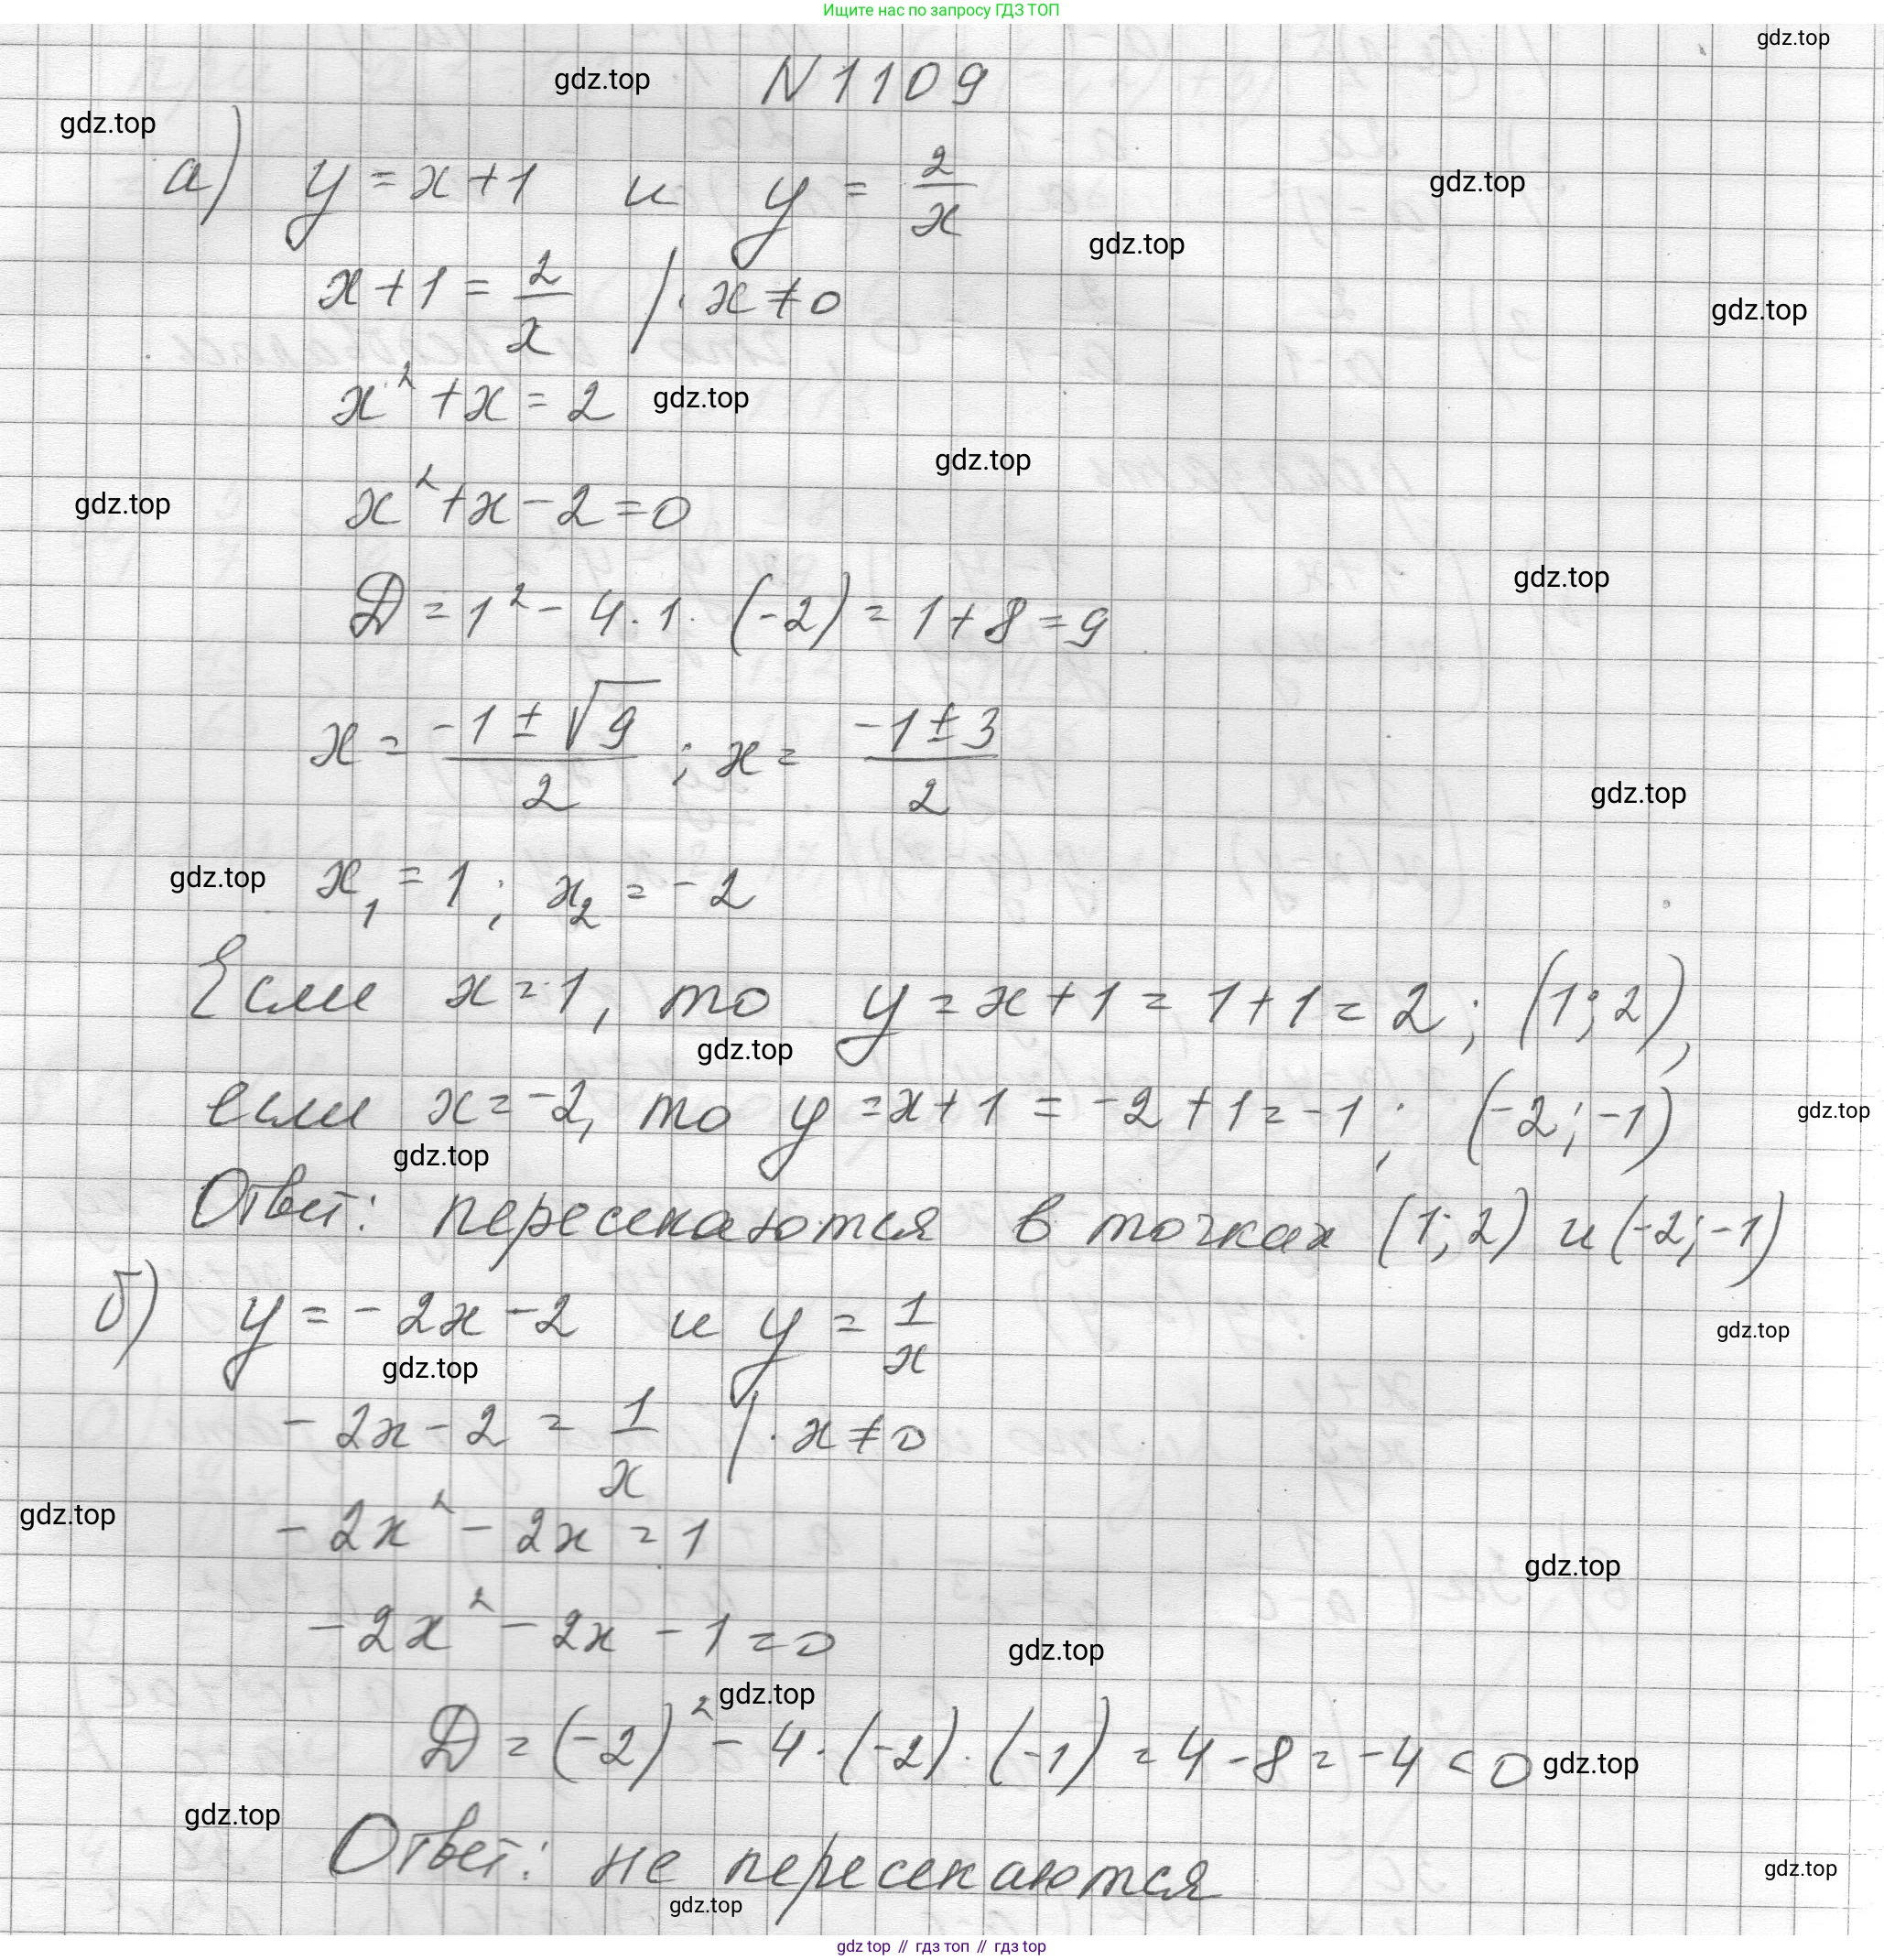 Ищите нас по запросу ГДЗ ТОП
gdz.top
gdz.top N 1109
gdz.top
а) y = x + 1 и y = 2/x
gdz.top
gdz.top
x + 1 = 2/x | · x ≠ 0
gdz.top
x² + x = 2
gdz.top
gdz.top
gdz.top
x² + x - 2 = 0
gdz.top
D = 1² - 4 · 1 · (-2) = 1 + 8 = 9
x = (-1 ± √9)/2 ; x = (-1 ± 3)/2
gdz.top
gdz.top
x₁ = 1 ; x₂ = -2
Если x = 1, то y = x + 1 = 1 + 1 = 2 ; (1; 2),
gdz.top
если x = -2, то y = x + 1 = -2 + 1 = -1 ; (-2; -1)
gdz.top
gdz.top
Ответ: пересекаются в точках (1; 2) и (-2; -1)
б) y = -2x - 2 и y = 1/x
gdz.top
gdz.top
-2x - 2 = 1/x | · x ≠ 0
gdz.top
-2x² - 2x = 1
gdz.top
-2x² - 2x - 1 = 0
gdz.top
gdz.top
D = (-2)² - 4 · (-2) · (-1) = 4 - 8 = -4 < 0
gdz.top
gdz.top
Ответ: не пересекаются
gdz.top
gdz.top
gdz top // гдз топ // гдз top